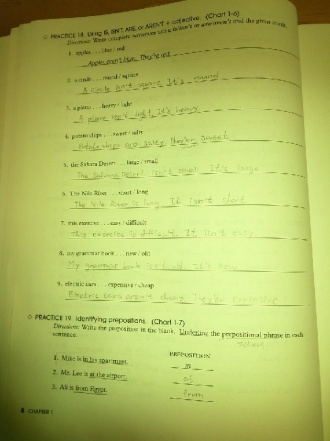 PRACTICE 18. Using IS, ISN'T, ARE, or AREN'T + adjective. (Chart 1-6)
Directions: Write complete sentences using is/isn't or are/aren't and the given words.
1. apples . . . blue / red
Apples aren't blue. They're red.
2. a circle . . . round / square
A circle isn't square It's round
3. a piano . . . heavy / light
A piano isn't light, It's heavy
4. potato chips . . . sweet / salty
Potato chips are salty
5. the Sahara Desert . . . large / small
The Sahara Desert isn't small. It's large
6. The Nile River . . . short / long
The Nile River is long. It isn't short
7. this exercise . . . easy / difficult
This exercise is difficult. It isn't easy
8. my grammar book . . . new / old
My grammar book
9. electric cars . . . expensive / cheap
Electric cars aren't cheap They're expensive
PRACTICE 19. Identifying prepositions. (Chart 1-7)
Directions: Write the preposition in the blank. Underline the prepositional phrase in each
sentence.
PREPOSITION
1. Mike is in his apartment. in
2. Mr. Lee is at the airport. at
3. Ali is from Egypt. from
8 CHAPTER 1